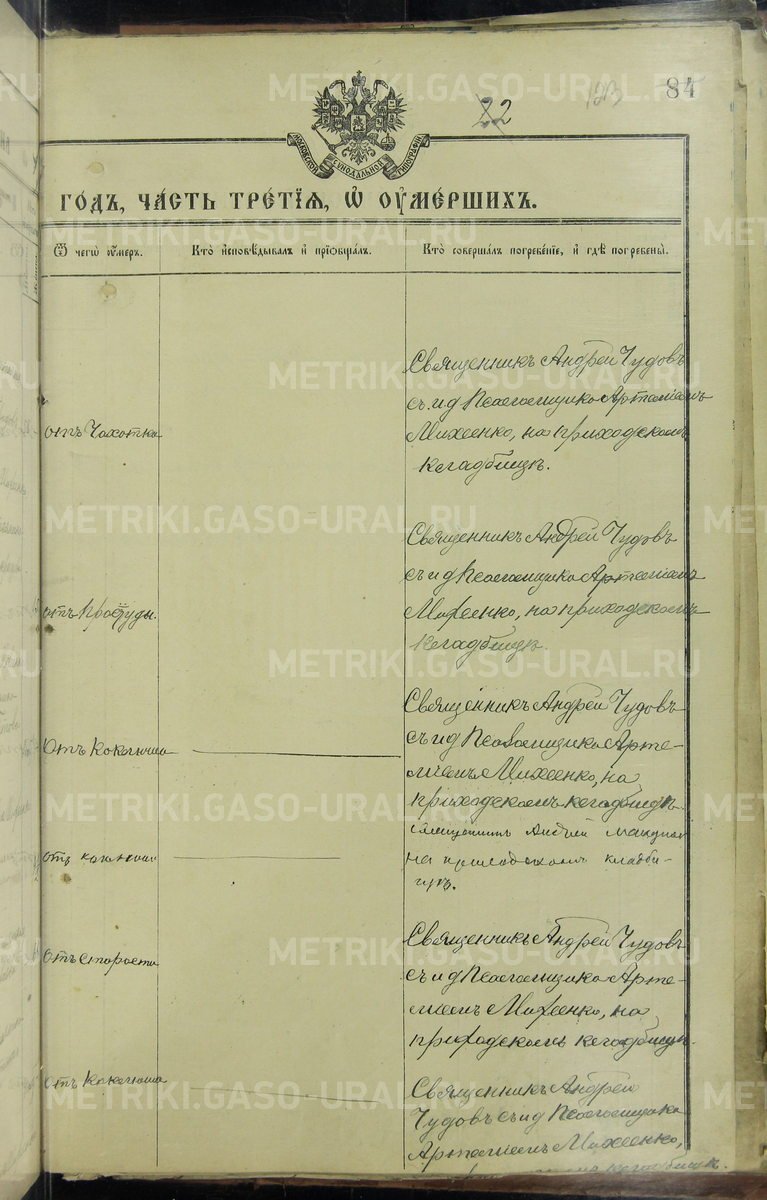 84
123
22
МОСКОВСКОЙ СѴНОДАЛЬНОЙ ТИПОГРАФІИ
ГОДЪ, ЧА́СТЬ ТРЕ́ТІѦ, Ѡ ОУМЕ́РШИХЪ.
Ѿ чегѡ̀ оу́меръ.
Кто̀ и҆сповѣ́дывалъ и҆ прїѡбща́лъ.
Кто̀ соверша́лъ погребе́нїе, и҆ гдѣ̀ погребены̀.
отъ Чахотки
Священникъ Андрей Чудовъ
съ и д Псаломщика Артеміемъ
Михеенко, на приходскомъ
кладбищѣ.
отъ простуды.
Священникъ Андрей Чудовъ
съ и д Псаломщика Артеміемъ
Михеенко, на приходскомъ
кладбищѣ.
Отъ Коклюша
Священникъ Андрей Чудовъ
съ и д Псаломщика Арте-
міемъ Михеенко, на
приходскомъ кладбищѣ.
отъ коклюша
Андрей
на приходскомъ кладби-
щѣ.
отъ старости
Священникъ Андрей Чудовъ
съ и д Псаломщика Арте-
міемъ Михеенко, на
приходскомъ кладбищѣ.
отъ Коклюша
Священникъ Андрей
Чудовъ съ и д Псаломщика
Артеміемъ Михеенко,
кладбищѣ.
METRIKI.GASO-URAL.RU